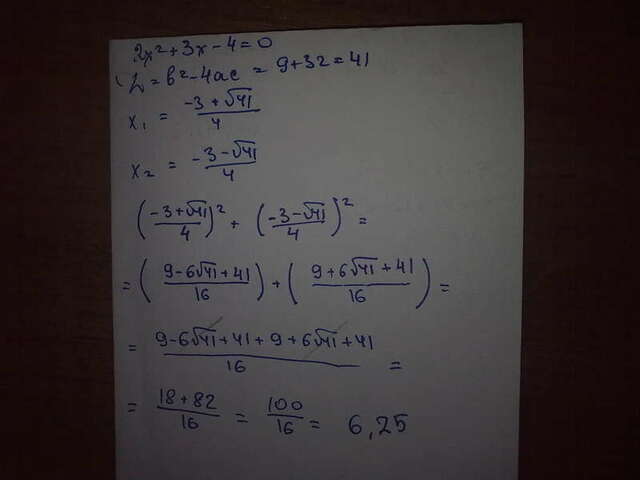 2x² + 3x - 4 = 0
D = b² - 4ac = 9 + 32 = 41
x₁ = (-3 + √41)/4
x₂ = (-3 - √41)/4
((-3 + √41)/4)² + ((-3 - √41)/4)² =
= ((9 - 6√41 + 41)/16) + ((9 + 6√41 + 41)/16) =
= (9 - 6√41 + 41 + 9 + 6√41 + 41)/16 =
= (18 + 82)/16 = 100/16 = 6,25